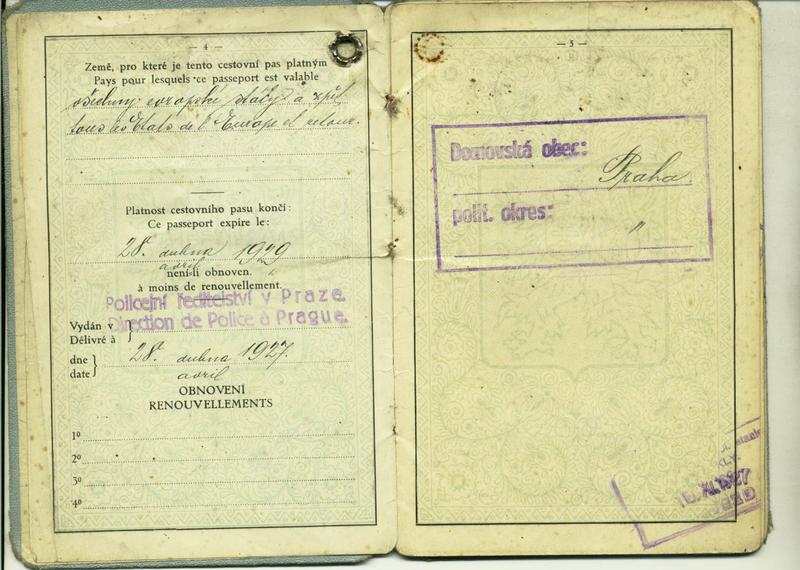 — 4 —
Země, pro které je tento cestovní pas platným
Pays pour lesquels ce passeport est valable
všechny evropské státy a zpět
tous les États de l'Europe et retour.
Platnost cestovního pasu končí:
Ce passeport expire le:
28. dubna 1929
avril
není-li obnoven.
à moins de renouvellement.
Policejní ředitelství v Praze.
Vydán v
Direction de Police à Prague.
Délivré à
dne
28. dubna 1927.
date
avril
OBNOVENÍ
RENOUVELLEMENTS
1º
2º
3º
4º
— 5 —
Domovská obec:
Praha
polit. okres:
"